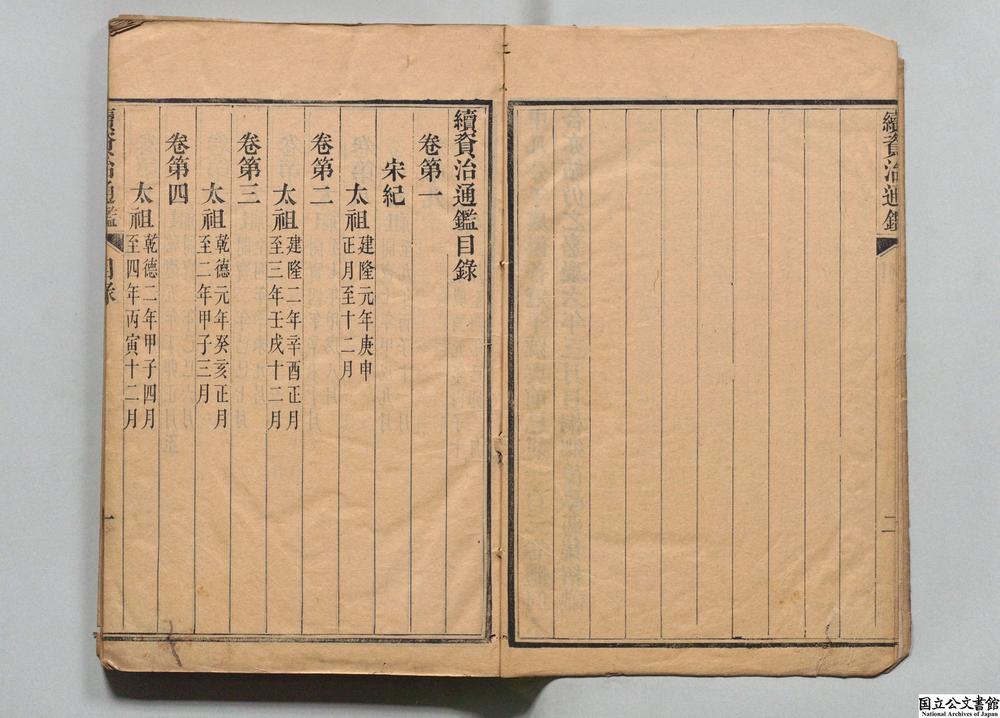 續資治通鑑
二
續資治通鑑目錄
卷第一
宋紀
太祖建隆元年庚申
正月至十二月
卷第二
太祖建隆二年辛酉正月
至三年壬戌十二月
卷第三
太祖乾德元年癸亥正月
至二年甲子三月
卷第四
太祖乾德二年甲子四月
至四年丙寅十二月
續資治通鑑
目錄
一
国立公文書館
National Archives of Japan